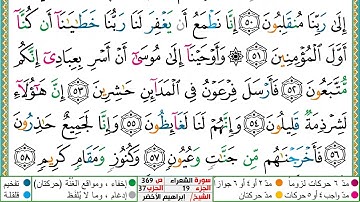 إِلَىٰ رَبِّنَا مُنقَلِبُونَ ﴿٥٠﴾ إِنَّا نَطْمَعُ أَن يَغْفِرَ لَنَا رَبُّنَا خَطَٰيَٰنَآ أَن كُنَّآ
أَوَّلَ ٱلْمُؤْمِنِينَ ﴿٥١﴾ وَأَوْحَيْنَآ إِلَىٰ مُوسَىٰٓ أَنْ أَسْرِ بِعِبَادِىٓ إِنَّكُم
مُّتَّبَعُونَ ﴿٥٢﴾ فَأَرْسَلَ فِرْعَوْنُ فِى ٱلْمَدَآئِنِ حَٰشِرِينَ ﴿٥٣﴾ إِنَّ هَٰٓؤُلَآءِ
لَشِرْذِمَةٌ قَلِيلُونَ ﴿٥٤﴾ وَإِنَّهُمْ لَنَا لَغَآئِظُونَ ﴿٥٥﴾ وَإِنَّا لَجَمِيعٌ حَٰذِرُونَ
﴿٥٦﴾ فَأَخْرَجْنَٰهُم مِّن جَنَّٰتٍ وَعُيُونٍ ﴿٥٧﴾ وَكُنُوزٍ وَمَقَامٍ كَرِيمٍ ﴿٥٨﴾
مدّ ٦ حركات لزوماً مدّ ٢ أو ٤ أو ٦ جوازاً سورة الشعراء ص 369 إخفاء ، ومواقع الغنّة (حركتان) تفخيم
مدّ واجب ٤ أو ٥ حركات مدّ حركتان الجزء 19 الحزب 37 إدغام ، وما لا يُلفَظ قلقلة
الشيخ/ إبراهيم الأخضر